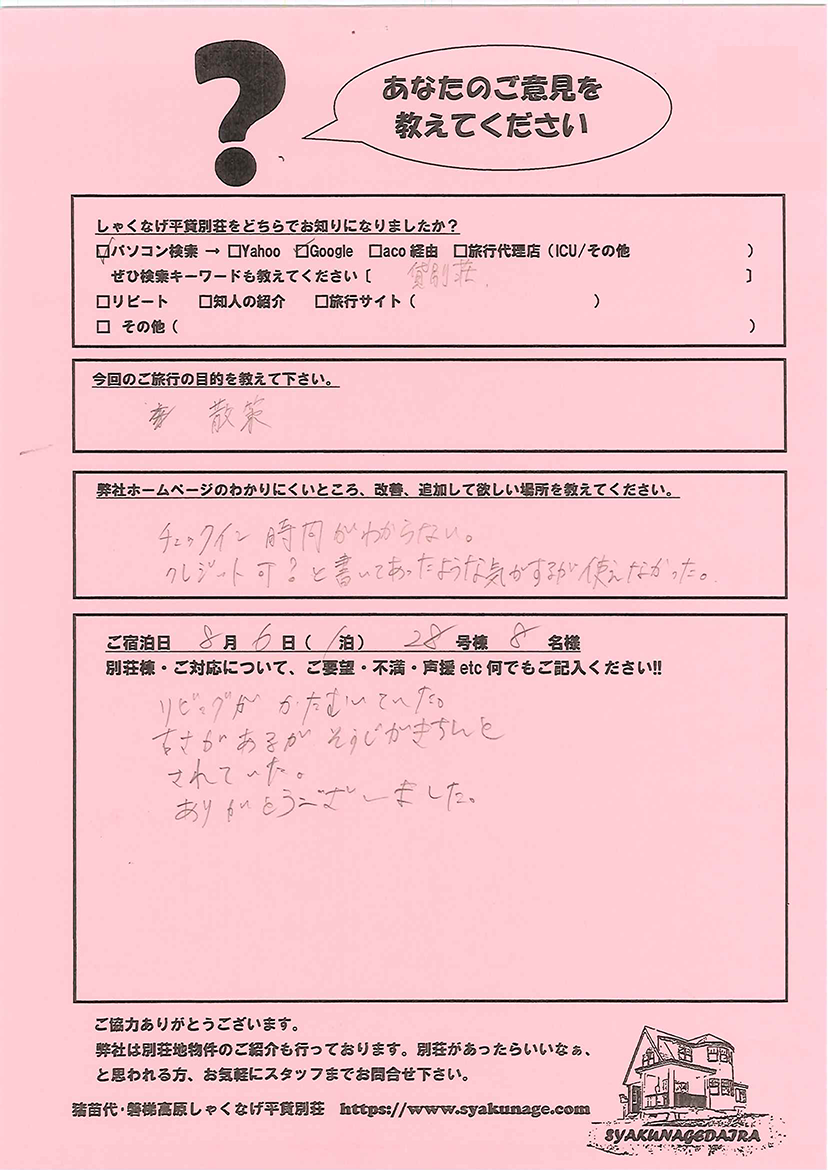 ?
あなたのご意見を
教えてください
しゃくなげ平貸別荘をどちらでお知りになりましたか？
☑パソコン検索 → □Yahoo ☑Google □aco 経由 □旅行代理店（ICU/その他 ）
ぜひ検索キーワードも教えてください [ 貸別荘. ]
□リピート □知人の紹介 □旅行サイト（ ）
□ その他（ ）
今回のご旅行の目的を教えて下さい。
散策
弊社ホームページのわかりにくいところ、改善、追加して欲しい場所を教えてください。
チェックイン時間がわからない。
クレジット可？と書いてあったような気がするが使えなかった。
ご宿泊日 8月 6日（ 1泊） 28号棟 8名様
別荘棟・ご対応について、ご要望・不満・声援 etc 何でもご記入ください!!
リビングがかたむいていた。
古さがあるがそうじがきちんと
されていた。
ありがとうございました。
ご協力ありがとうございます。
弊社は別荘地物件のご紹介も行っております。別荘があったらいいなぁ、
と思われる方、お気軽にスタッフまでお問合せ下さい。
猪苗代・磐梯高原しゃくなげ平貸別荘 https://www.syakunage.com
SYAKUNAGEDAIRA